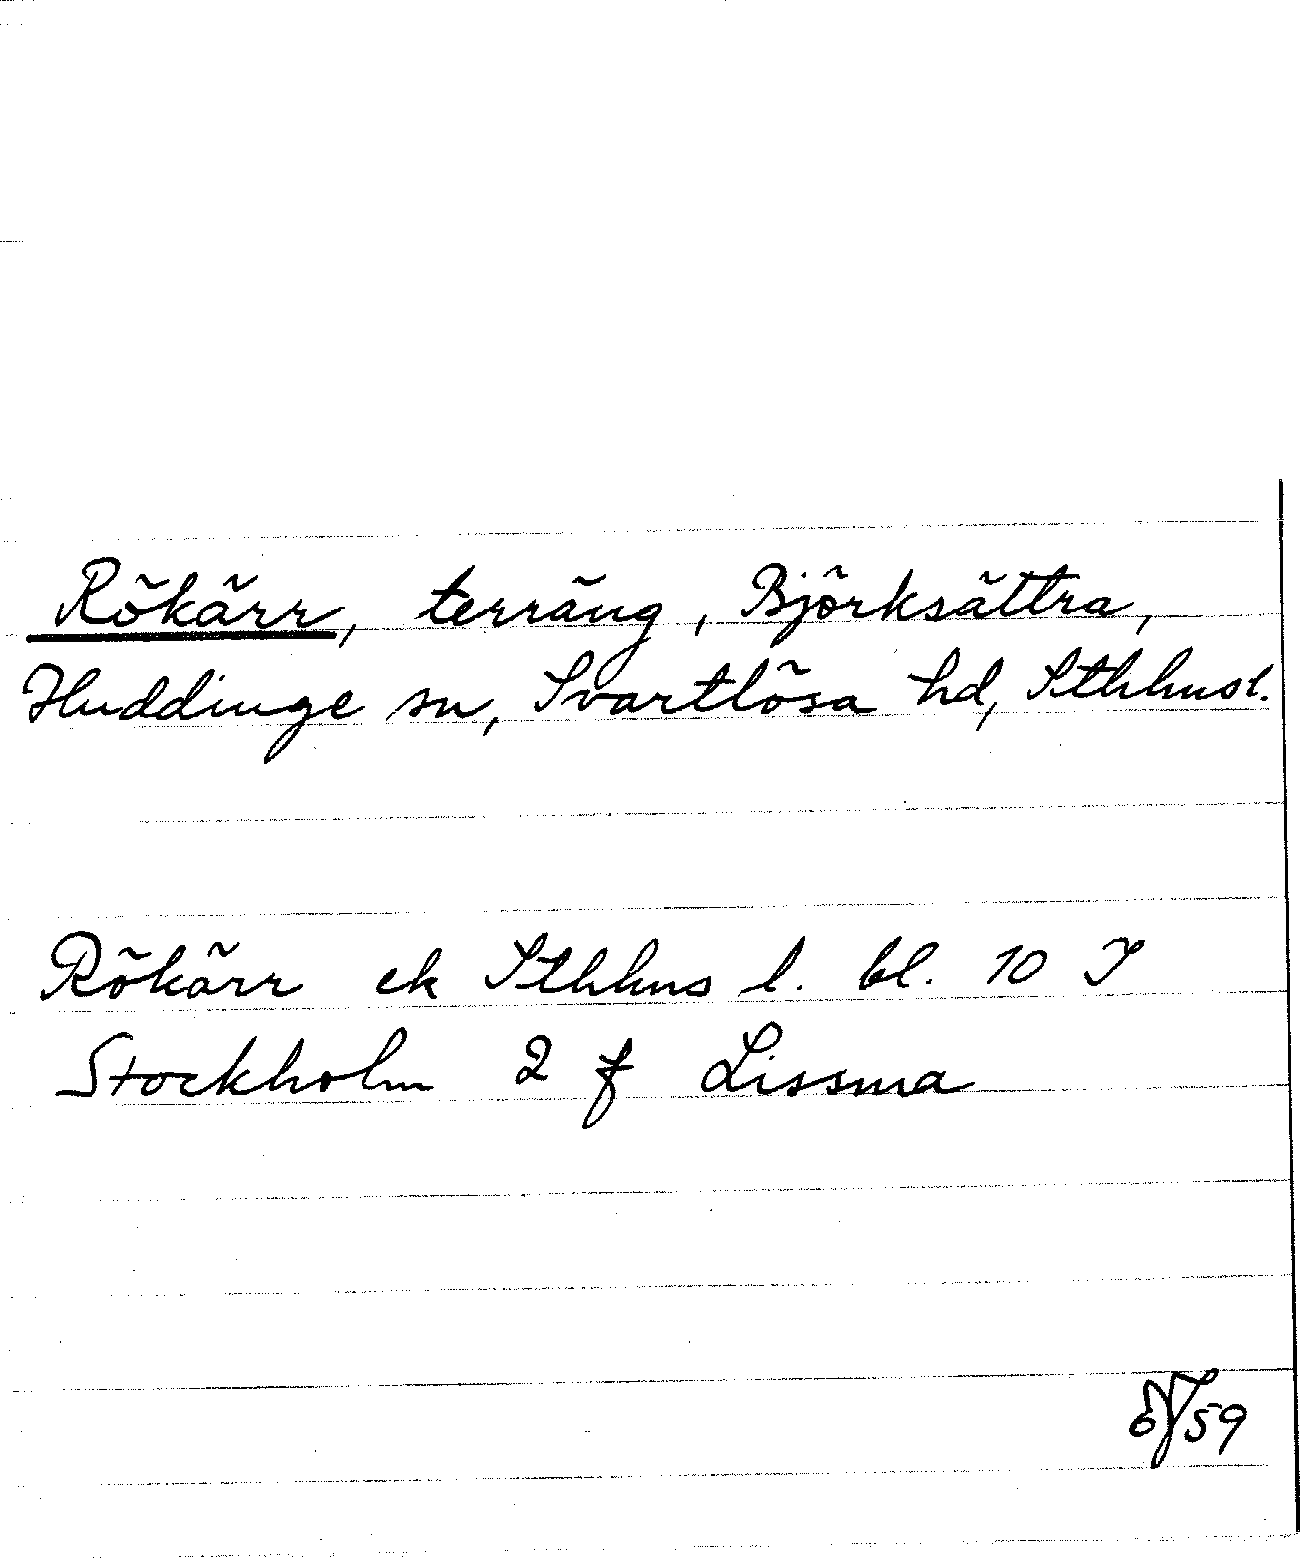 Rökärr, terräng, Björksättra,
Huddinge sn, Svartlösa hd, Sthlmsl.
Rökärr ek Sthlms l. bl. 10 I
Stockholm 2 f Lissma
59